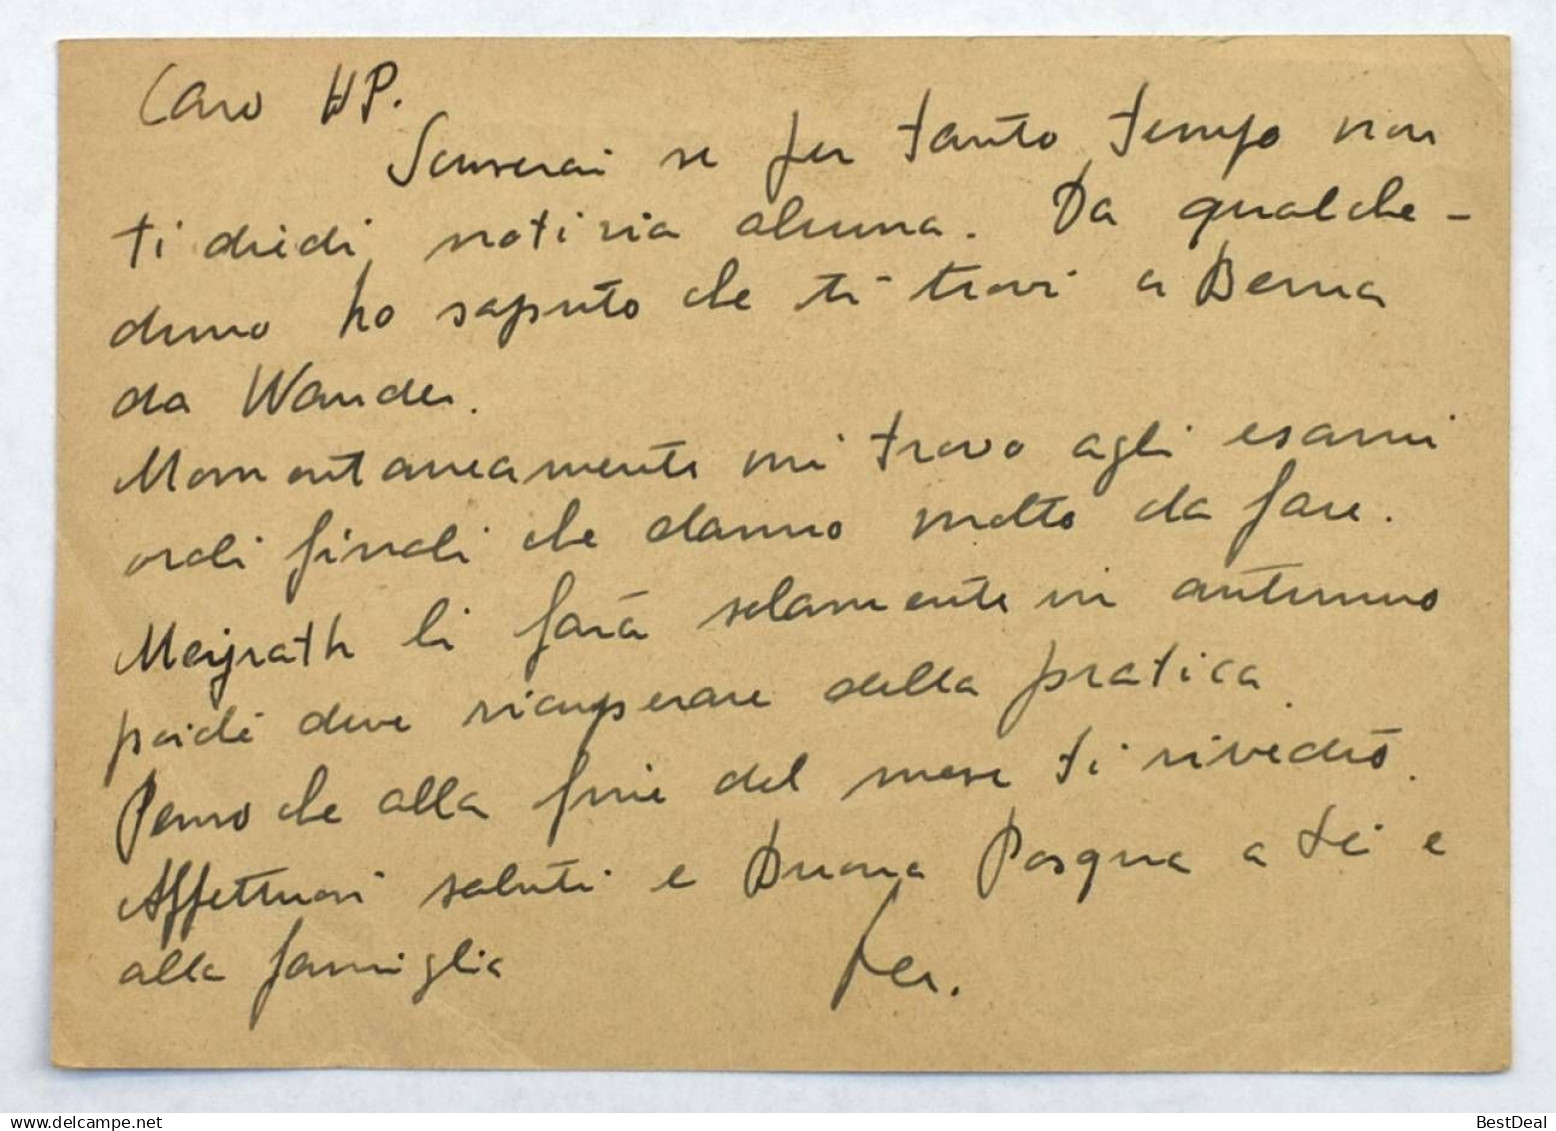 Caro HP.
Scuserai se per tanto tempo non
ti diedi notizia alcuna. Da qualche-
duno ho saputo che ti trovi a Berna
da Wander.
Momentaneamente mi trovo agli esami
orali finali che danno molto da fare.
Meyrath li farà solamente in autunno
poiché deve ricuperare della pratica
Penso che alla fine del mese ti rivedrò.
Affettuosi saluti e Buona Pasqua a te e
alla famiglia
www.delcampe.net
BestDeal